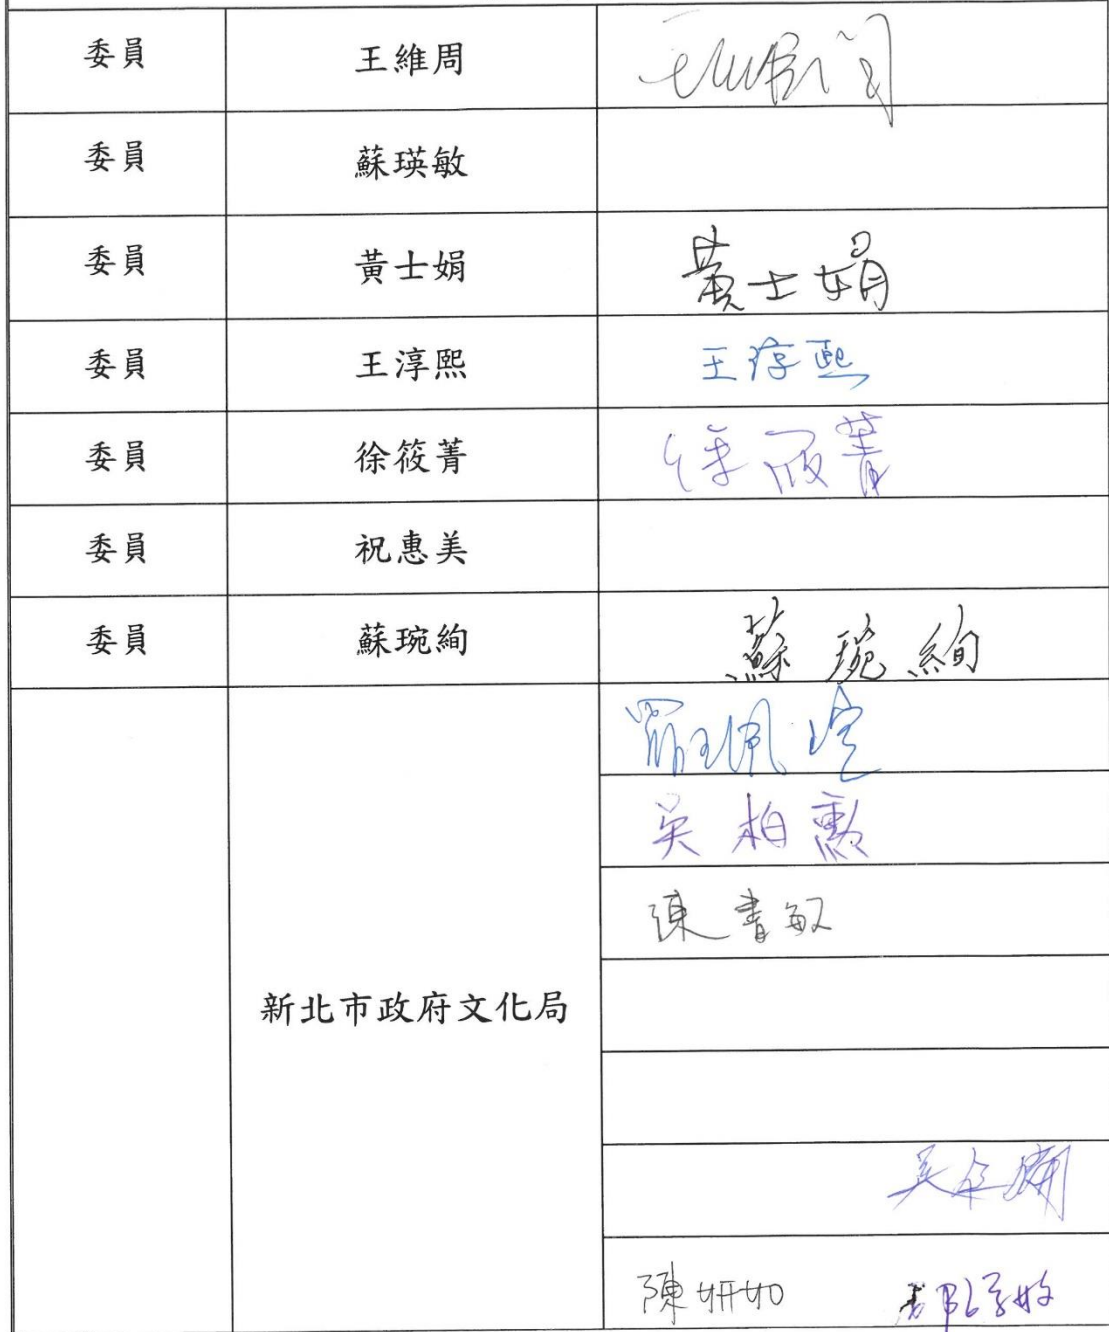 委員 王維周 王維周
委員 蘇瑛敏
委員 黃士娟 黃士娟
委員 王淳熙 王淳熙
委員 徐筱菁 徐筱菁
委員 祝惠美
委員 蘇琬絢 蘇琬絢
新北市政府文化局
吳柏勳
陳書敏
陳妍如